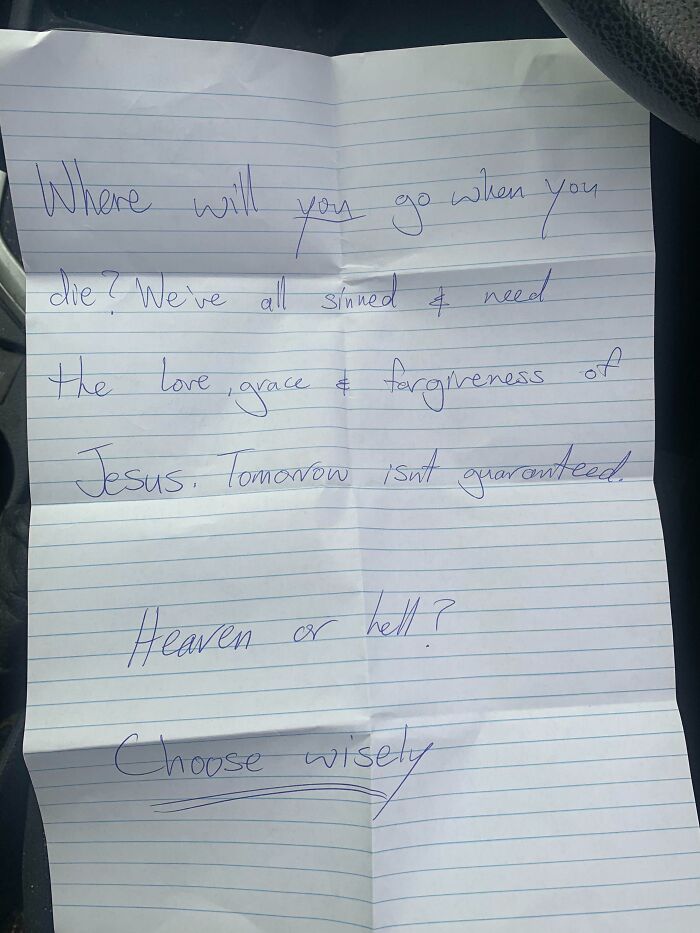 Where will you go when you
die? We've all sinned & need
the love, grace & forgiveness of
Jesus. Tomorrow isn't guaranteed.
Heaven or hell?
Choose wisely